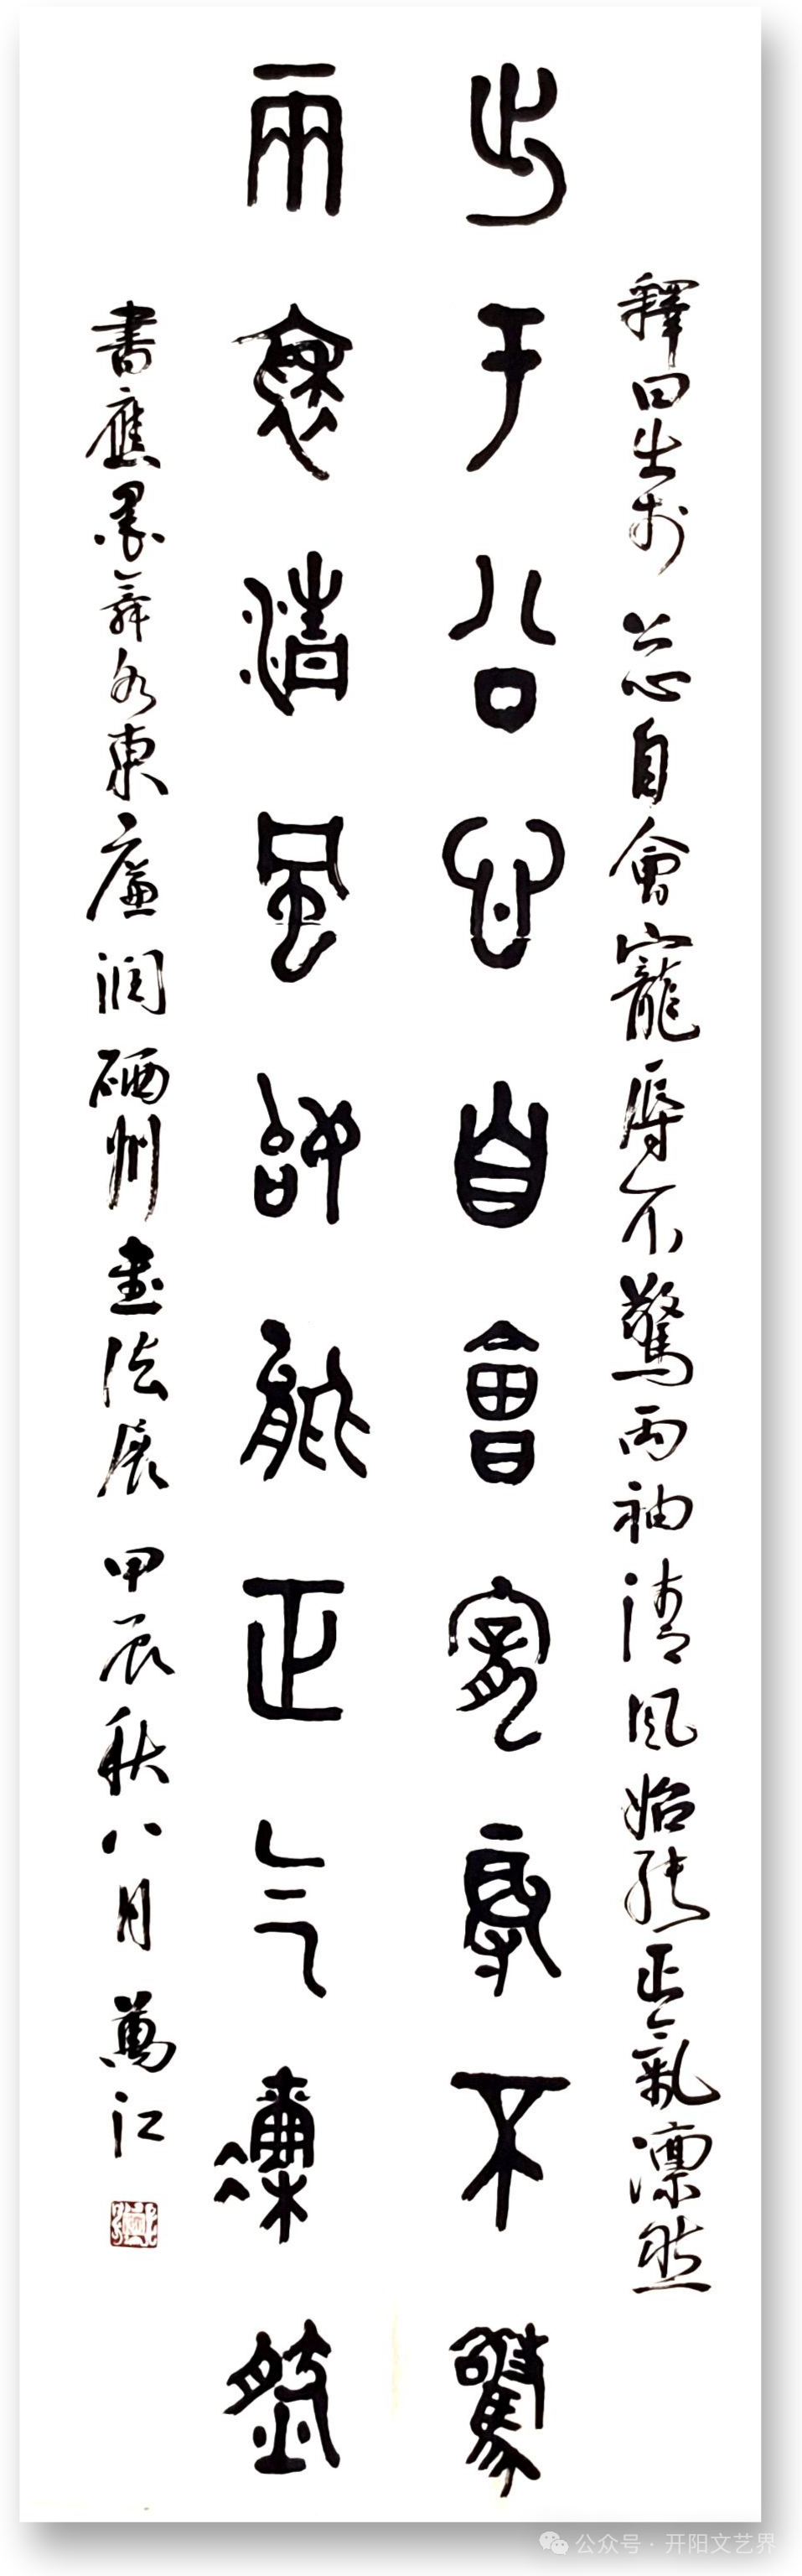 釋曰出於公心自會寵辱不驚兩袖清風始能正氣凛然
出于公心自會寵辱不驚
兩袖清風始能正气凛然
書應墨舞水東廉润硒州書法展 甲辰秋八月 萬江
公众号·开阳文艺界